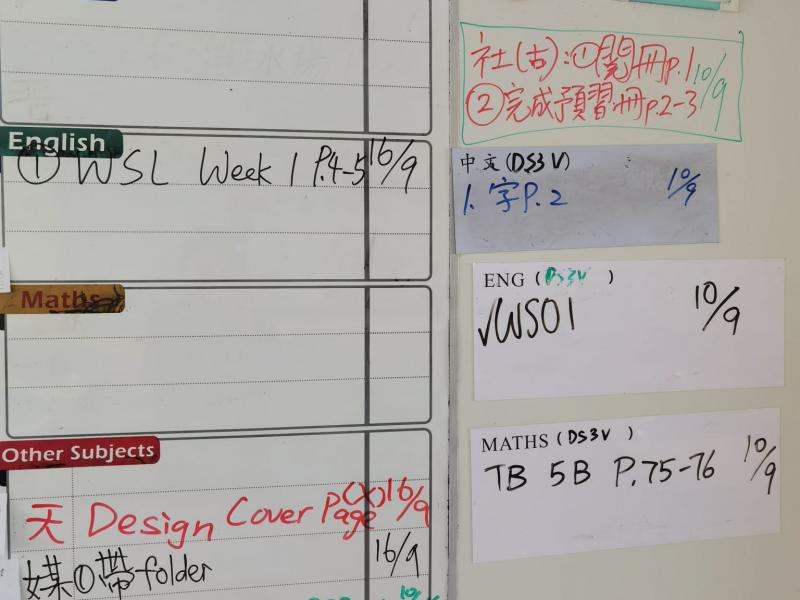 English
① WSL Week 1 P.4-5 16/9
Maths
Other Subjects
天 Design Cover Page (X) 16/9
媒①帶folder 16/9
10/
社(古):①閱冊p.1 10/9
②完成預習冊p2-3
中文(DS3V)
1. 字P.2 10/9
ENG (DS3V)
√WS01 10/9
MATHS (DS3V)
TB 5B P.75-76 10/9